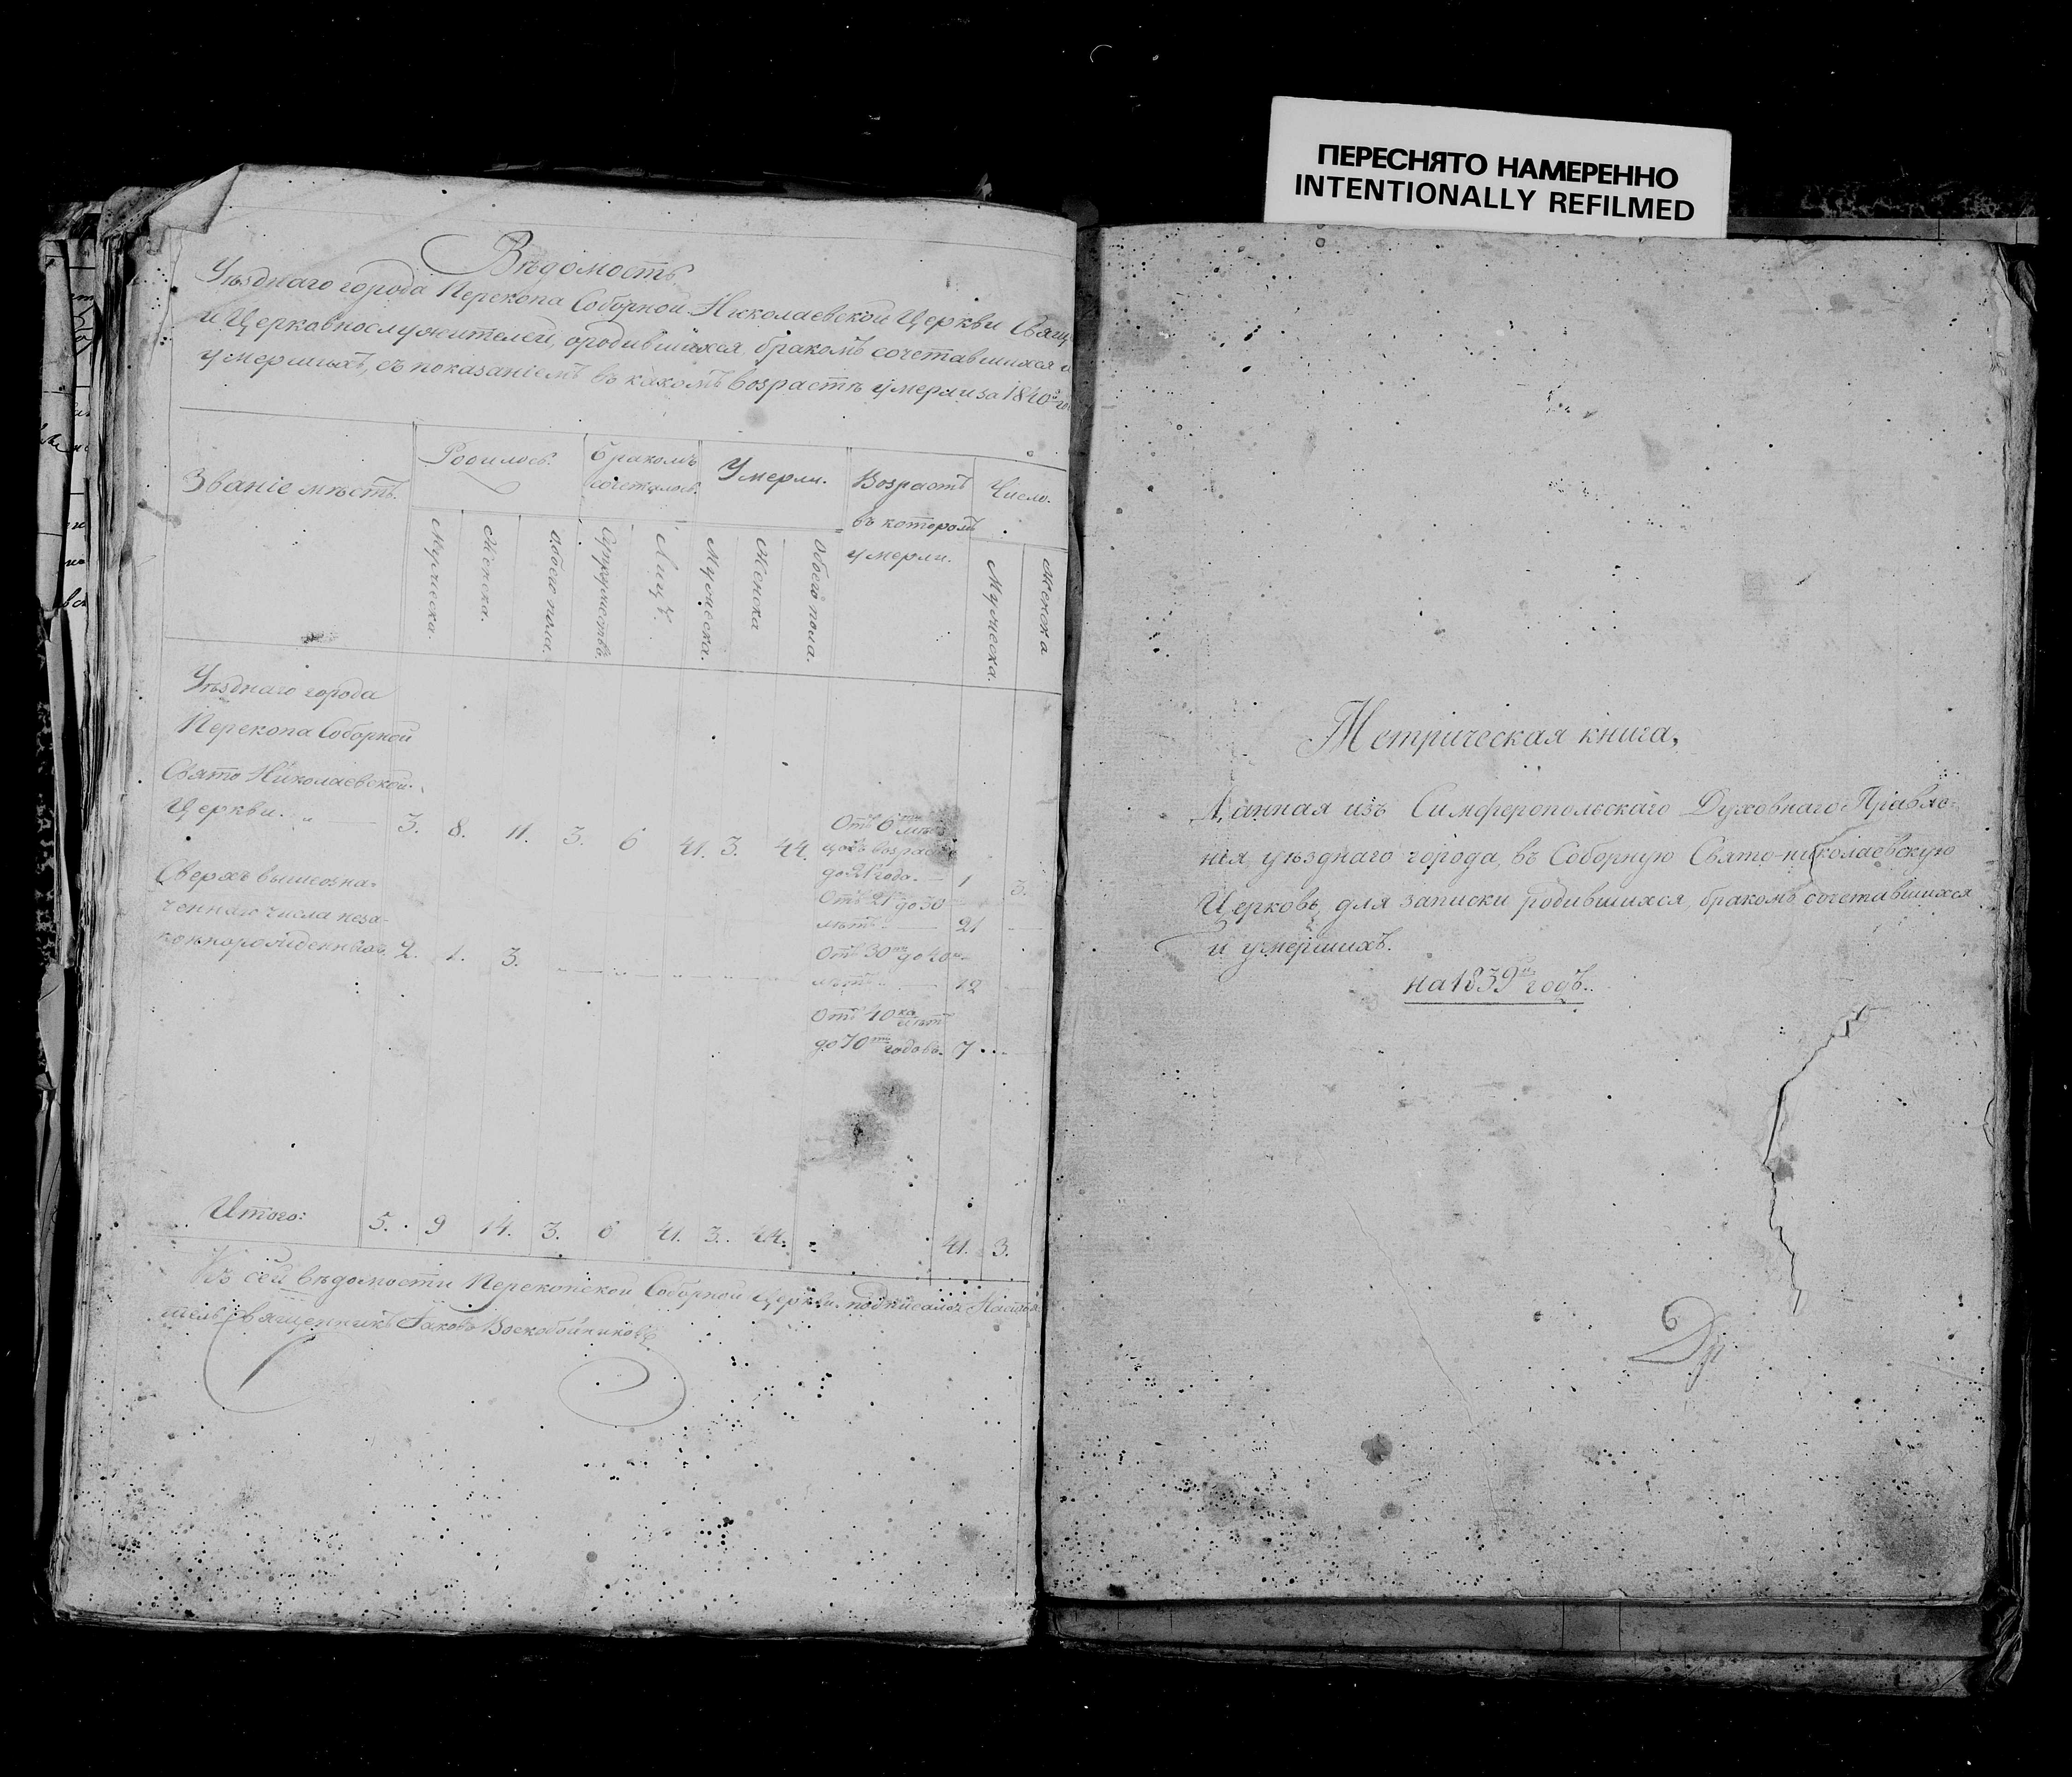 ПЕРЕСНЯТО НАМЕРЕННО
INTENTIONALLY REFILMED
Вѣдомость
Уѣзднаго города Перекопа Соборной Николаевской Церкви Свящ
и Церковнослужителей, ородившихся, бракомъ сочетавшихся и
умершихъ, съ показаніемъ въ какомъ возрастѣ умерли за 1840й го
Званіе мѣстъ. Родилось. Бракомъ сочеталось. Умерли. Возрастъ Число.
въ которомъ
умерли.
Мужеска. Женска. Обоего пола. Супружествъ. Лицъ. Мужеска. Женска Обоего пола. Мужеска. Женска
Уѣзднаго города
Перекопа Соборной
Свято Николаевской
Церкви. 3. 8. 11. 3. 6 41. 3. 44. Отъ 6ти мѣся
цовъ возраста
до 21 года. 1 3.
Сверхъ вышеозна-
ченнаго числа неза-
коннорожденныхъ 2. 1. 3.
Отъ 21 до 30
лѣтъ. 21
Отъ 30ти до 40
лѣтъ. 12
Отъ 40ка лѣтъ
до 70ти годовъ. 7
Итого: 5. 9 14. 3. 6 41. 3. 44. 41. 3.
Къ сей вѣдомости Перекопской Соборной Церкви подписался Настоя
тель Священникъ Іаковъ Воскобойниковъ
Метрическая книга,
Данная изъ Симферопольскаго Духовнаго Правле-
нія уѣзднаго города, въ Соборную Свято-николаевскую
Церковь, для записки родившихся, бракомъ сочетавшихся
и умершихъ.
на 1839й годъ.